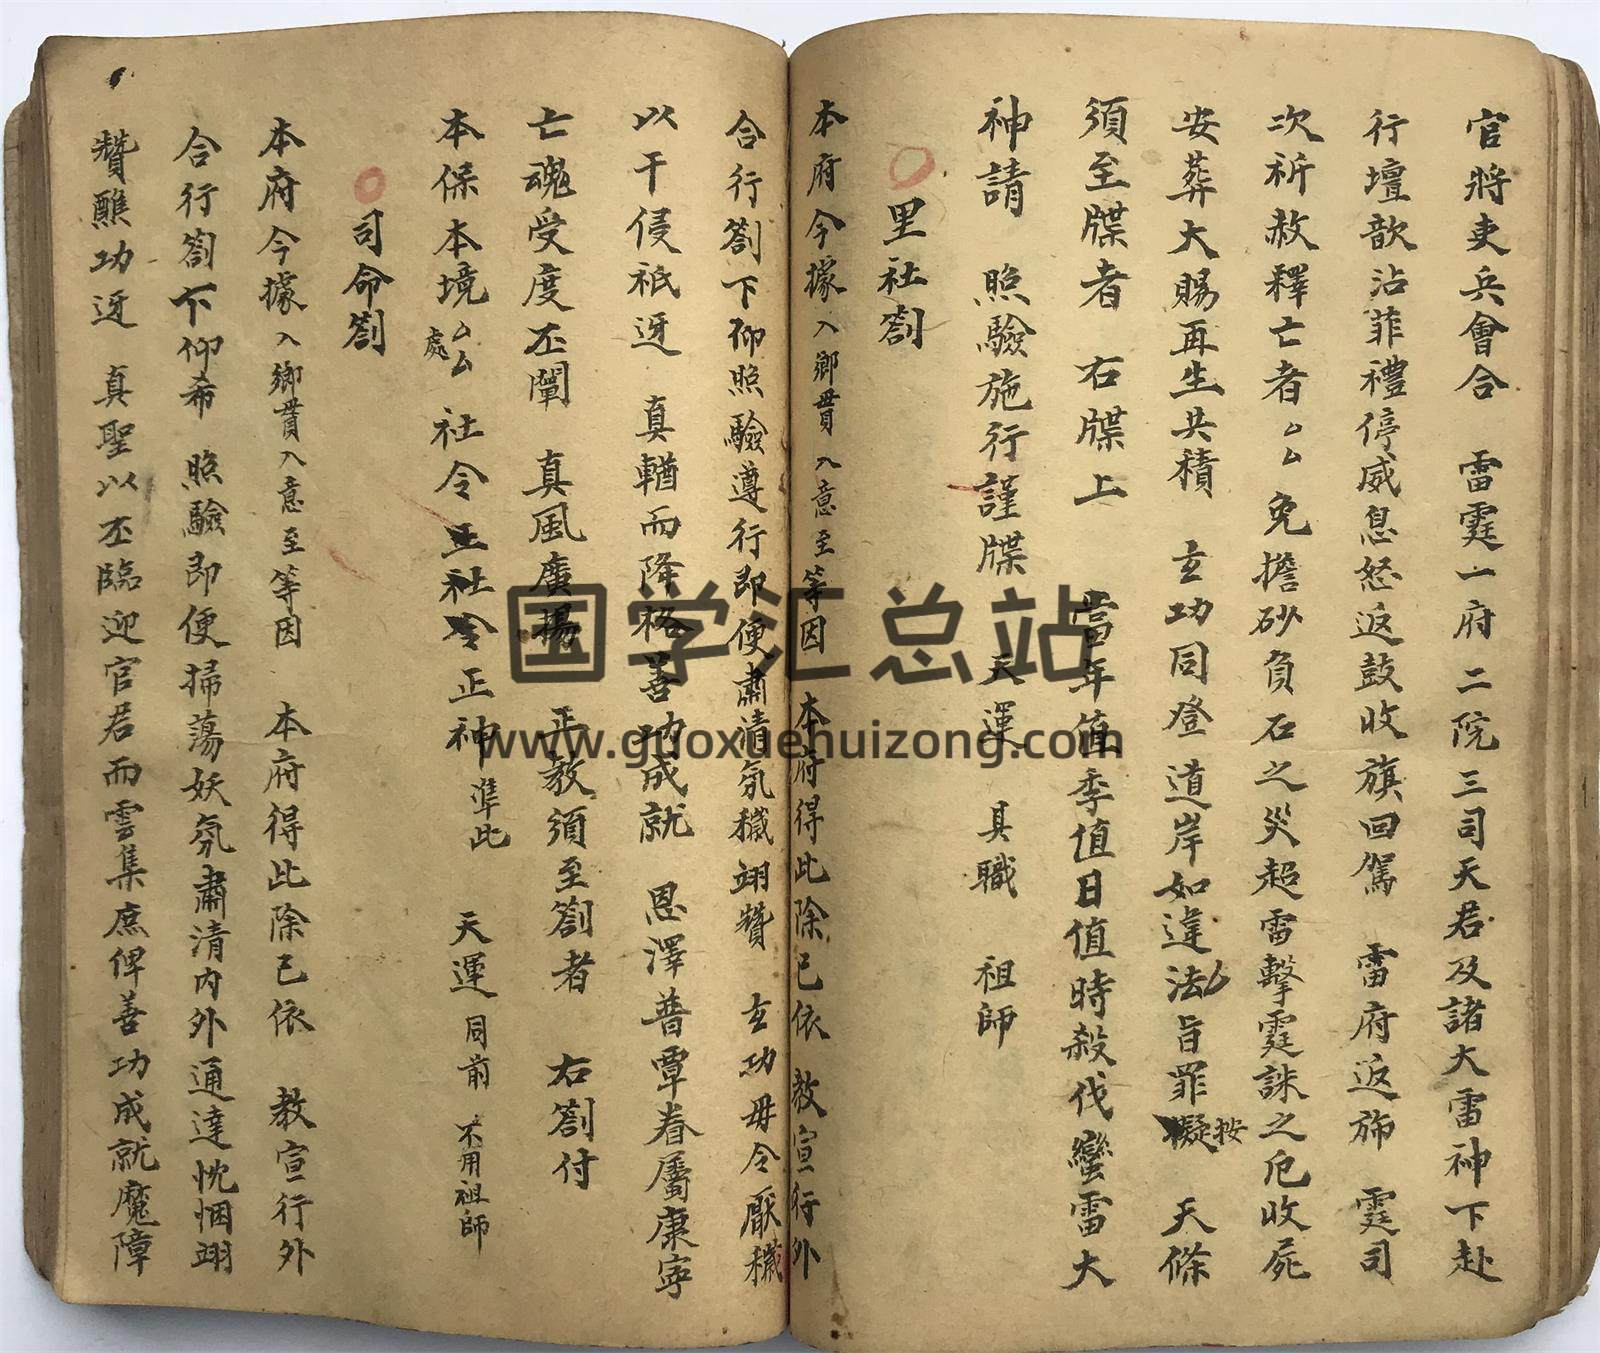 官將吏兵會合　雷霆一府二院三司天君及諸大雷神下赴
行壇歆沾菲禮停威息怒返鼓收旗回駕　雷府返旆　霆司
次祈赦釋亡者厶厶免擔砂負石之災超雷擊霆誅之厄收屍
安葬大賜再生共積　玄功同登道岸如違法旨罪擬按　天條
須至牒者　右牒上　當年值季值日值時殺伐蠻雷大
神請　照驗施行謹牒　天運　具職　祖師
里社劄
本府今據入鄉貫入意至等因　本府得此除已依　教宣行外
合行劄下仰照驗遵行即便肅清氛穢翊贊　玄功毋令厭穢
以干侵祇迓　真輶而降格善功成就　恩澤普覃眷屬康寧
亡魂受度丕闡　真風廣揚　正教須至劄者　右劄付
本保本境厶厶處　社令正社令正神準此　天運同前不用祖師
司命劄
本府今據入鄉貫入意至等因　本府得此除已依　教宣行外
合行劄下仰希　照驗即便掃蕩妖氛肅清內外通達忱悃翊
贊醮功迓　真聖以丕臨迎官君而雲集庶俾善功成就魔障
国学汇总站
www.guoxuehuizong.com